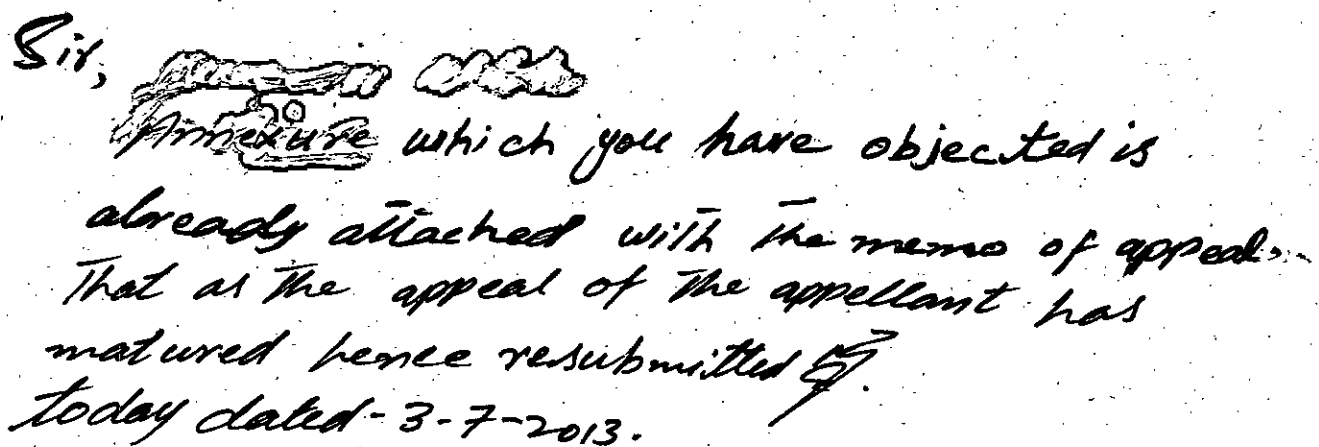 Sir,
Annexure which you have objected is
already attached with the memo of appeal.
That as the appeal of the appellant has
matured hence resubmitted
today dated - 3-7-2013.